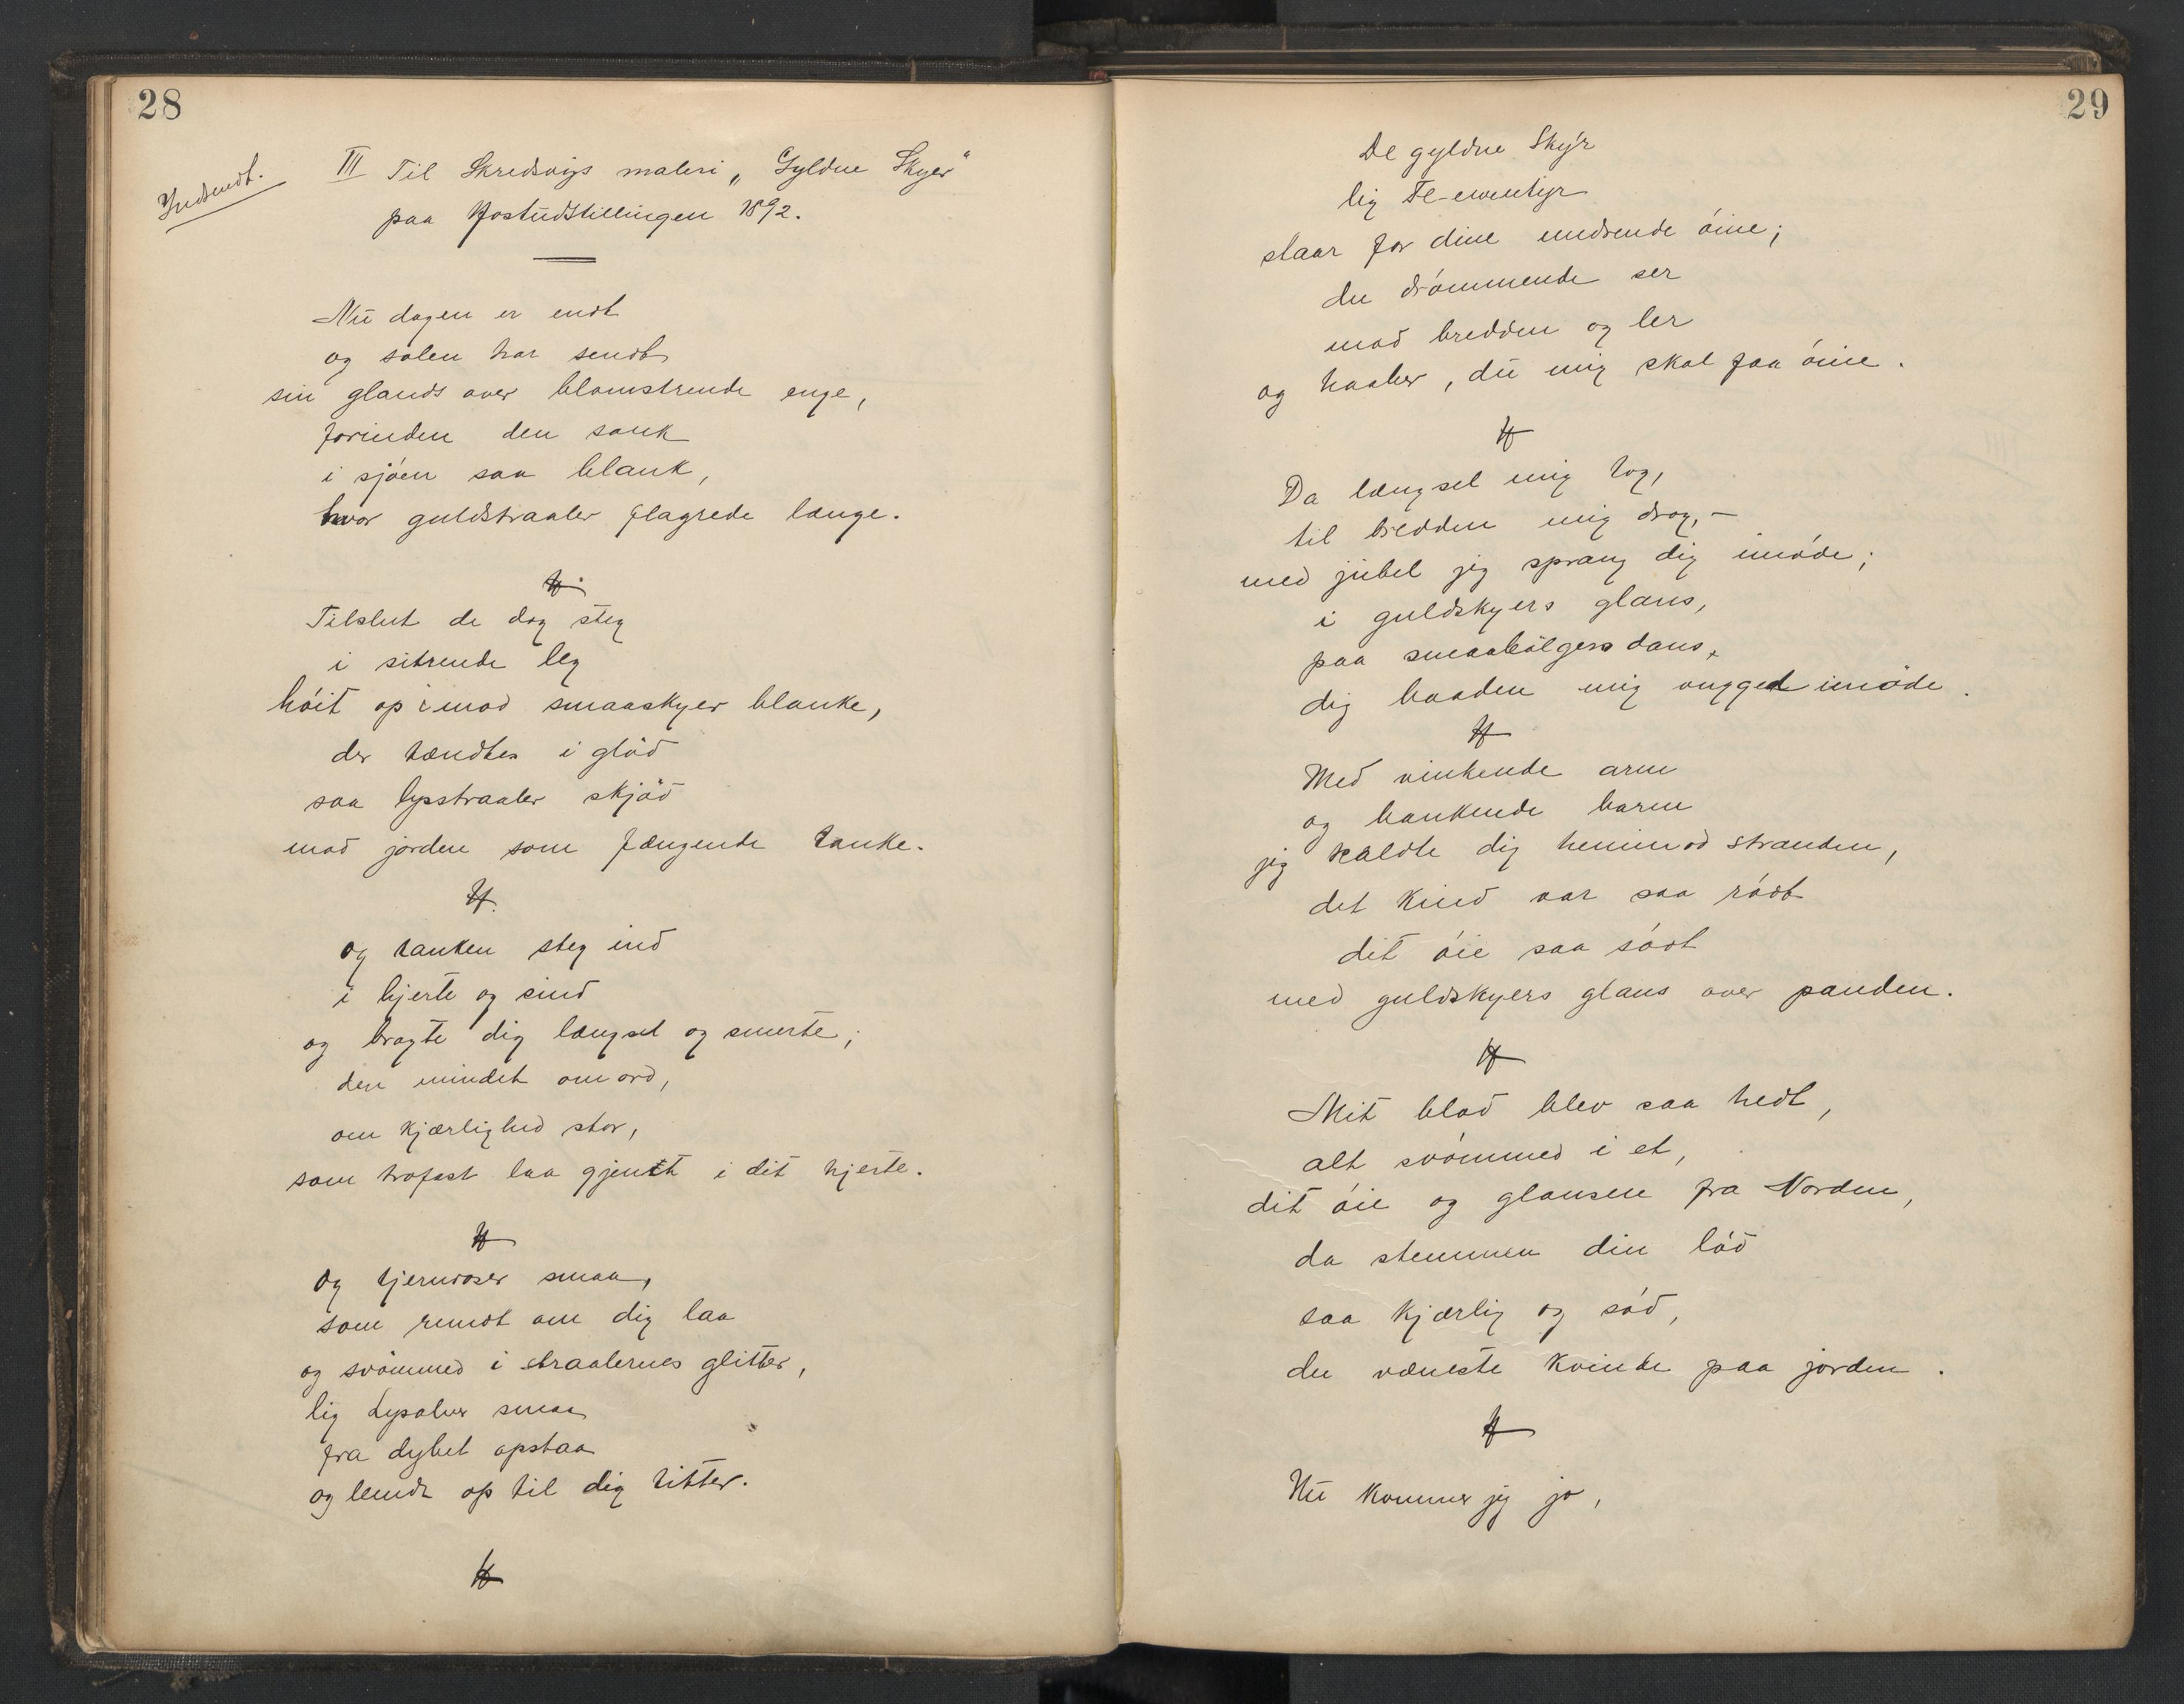 28
Indsendt.
III Til Skredsvigs maleri „Gyldne Skyer“
paa Høstudstillingen 1892.
Nu dagen er endt
og solen har sendt
sin glands over blomstrende enge,
forinden den sank
i sjøen saa blank,
hvor guldstraaler flagrede længe.
Tilslut de dog steg
i sitrende leg
høit op imod smaaskyer blanke,
der tændtes i glød
saa lysstraaler skjød
mod jorden som fængende tanke.
Og tanken steg ind
i hjerte og sind
og bragte dig længsel og smerte;
den mindet om ord,
om kjærlighed stor,
som trofast laa gjemt i dit hjerte.
Og tjernroser smaa,
som rundt om dig laa
og svømmed i straalernes glitter,
lig Lysalver smaa
fra dybet opstaa
og leende op til dig titter.
29
De gyldne Sky'r
lig Fe-eventyr
staar for dine undrende øine;
du drømmende ser
mod bredden og ler
og haaber, du mig skal faa øine.
Da længsel mig tog,
til bredden mig drog, –
med jubel jeg sprang dig imøde;
i guldskyers glans,
paa smaabølgers dans,
dig baaden mig vugged imøde.
Med vinkende arm
og bankende barm
jeg kaldte dig henimod stranden,
det kind var saa rødt
dit øie saa sødt
med guldskyers glans over panden.
Mit blod blev saa hedt,
alt svømmed i et,
dit øie og glansen fra Norden,
da stemmen din lød
saa kjærlig og sød,
du væneste kvinde paa jorden.
Nu kommer jeg jo,